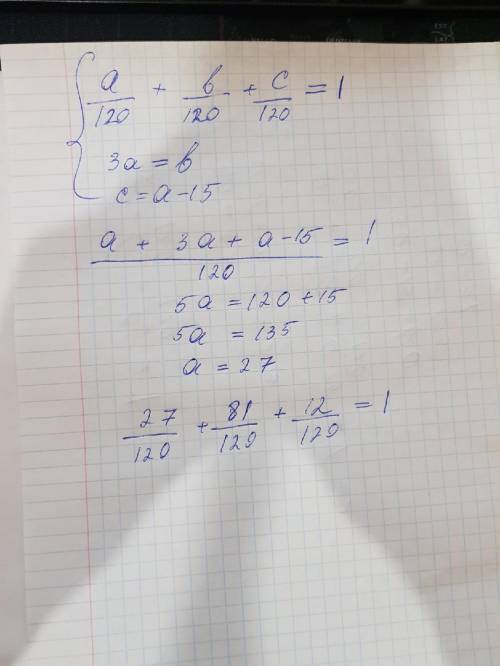 a/120 + b/120 + c/120 = 1
3a = b
c = a - 15
(a + 3a + a - 15)/120 = 1
5a = 120 + 15
5a = 135
a = 27
27/120 + 81/120 + 12/120 = 1